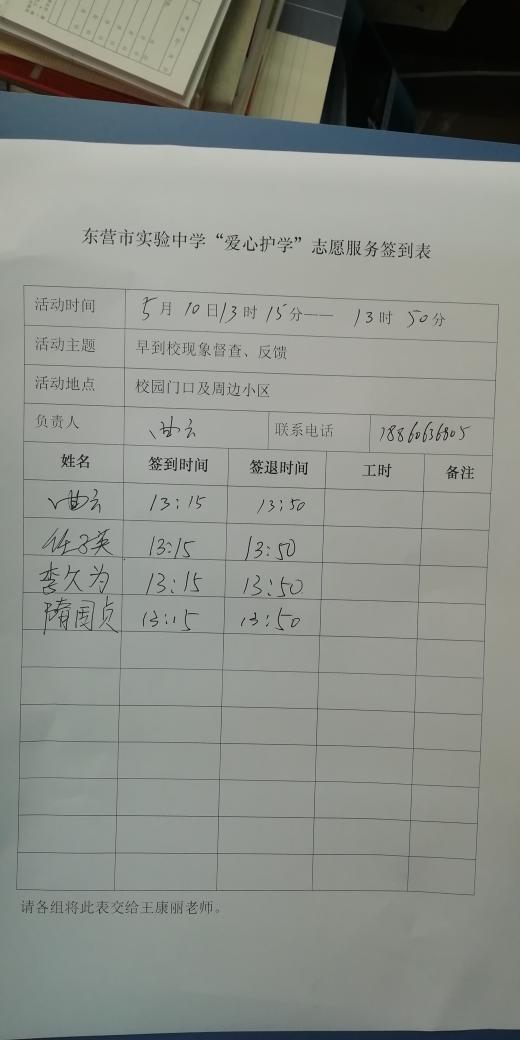 东营市实验中学“爱心护学”志愿服务签到表
活动时间 5月10日13时15分—— 13时50分
活动主题 早到校现象督查、反馈
活动地点 校园门口及周边小区
负责人 曲云 联系电话 18860636805
姓名 签到时间 签退时间 工时 备注
曲云 13:15 13:50
任子英 13:15 13:50
李久为 13:15 13:50
隋国贞 13:15 13:50
请各组将此表交给王康丽老师。